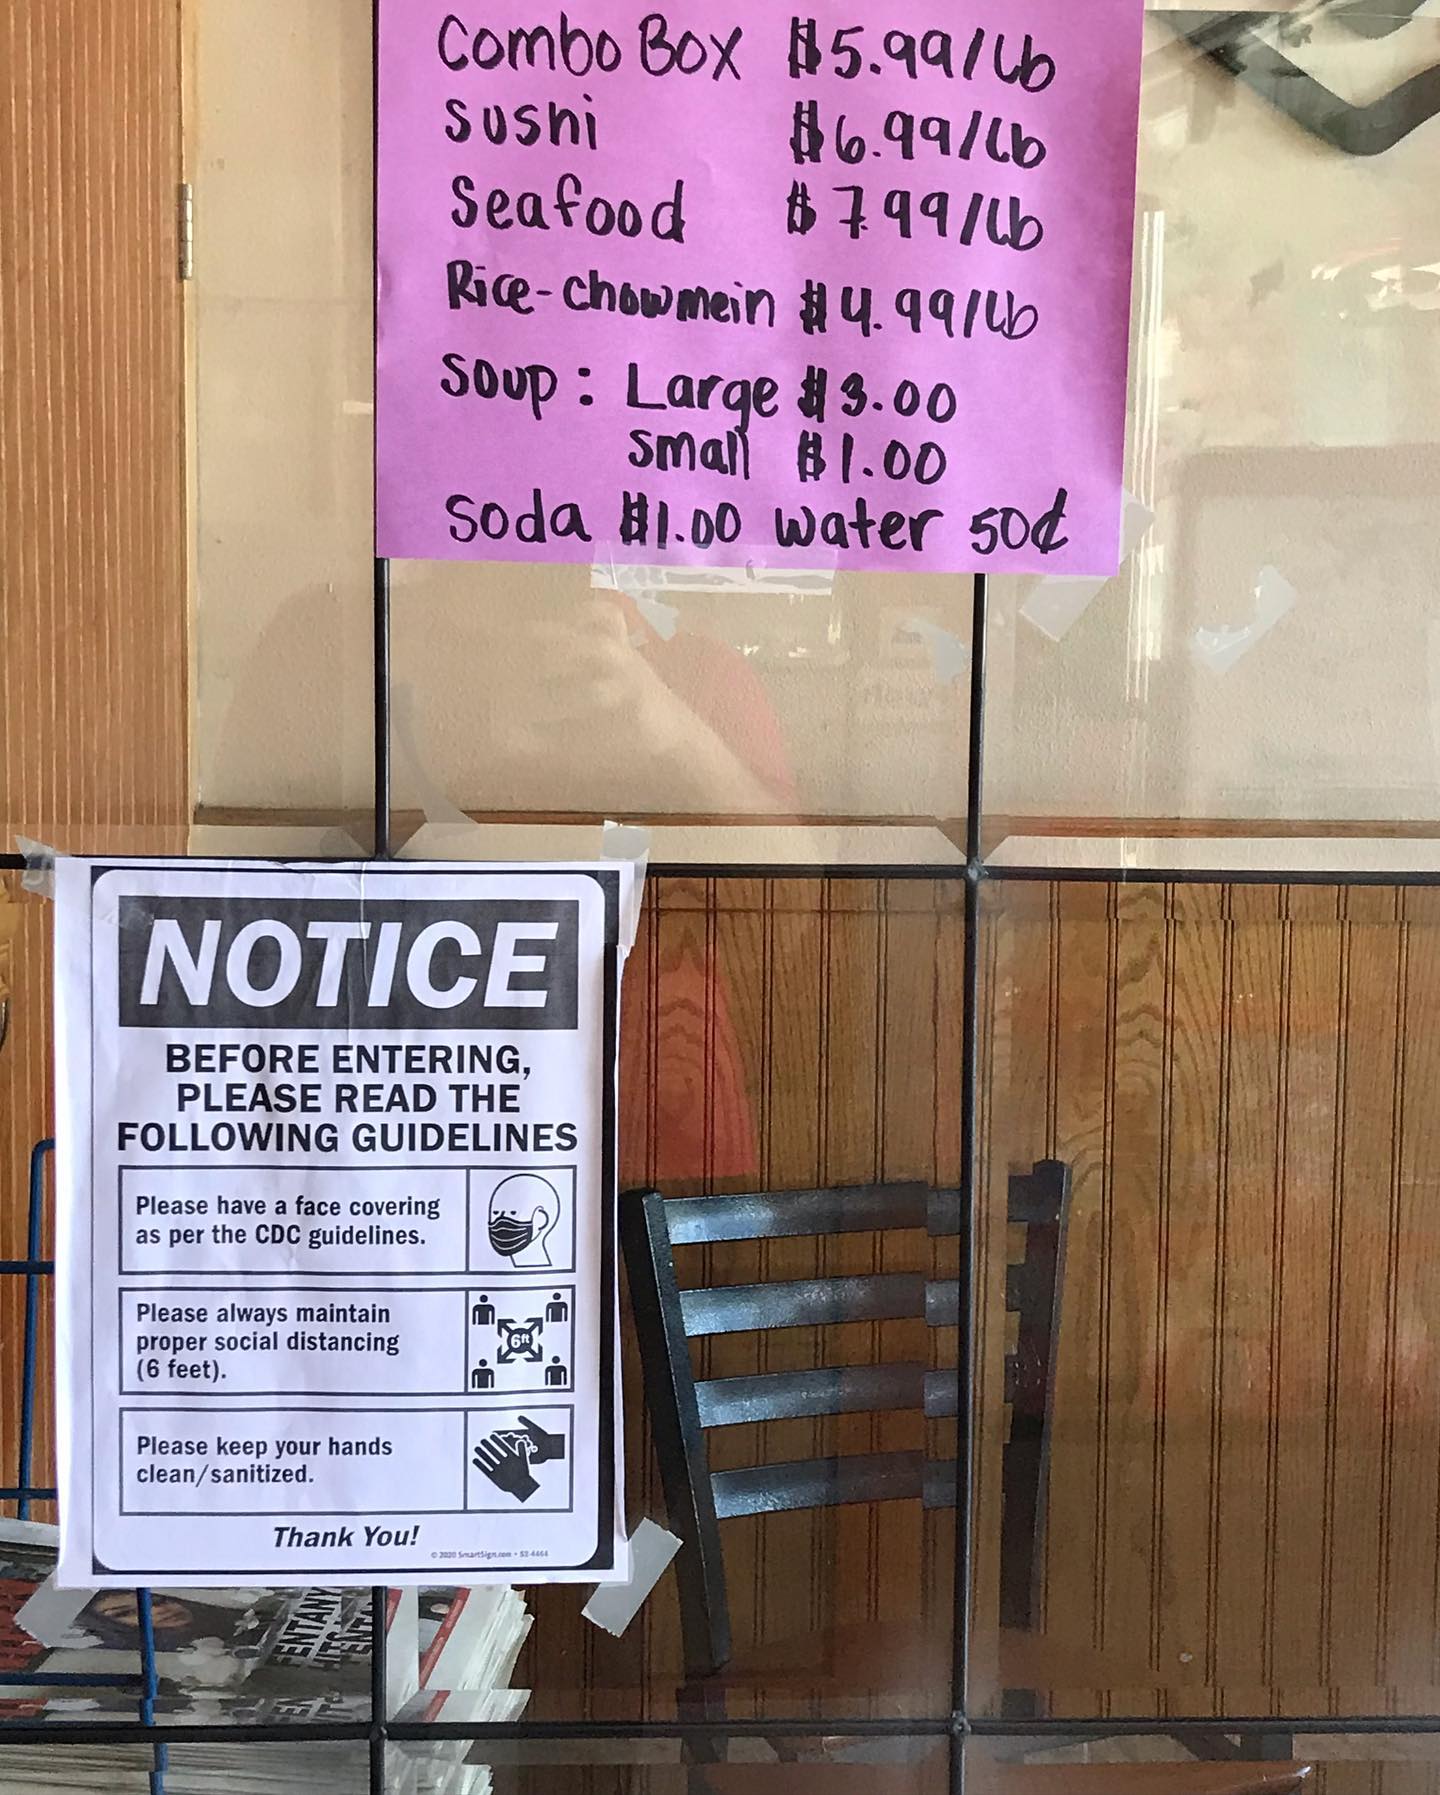 Combo Box $5.99/lb
Sushi $6.99/lb
Seafood $7.99/lb
Rice-chowmein $4.99/lb
Soup: Large $3.00
small $1.00
Soda $1.00 water 50¢
NOTICE
BEFORE ENTERING,
PLEASE READ THE
FOLLOWING GUIDELINES
Please have a face covering
as per the CDC guidelines.
Please always maintain
proper social distancing
(6 feet).
6ft
Please keep your hands
clean/sanitized.
Thank You!
© 2020 SmartSign.com • S2-4464